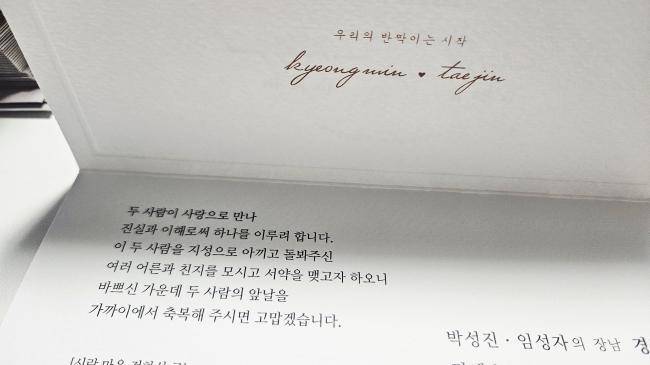 우리의 반짝이는 시작
kyeongmin ♥ taejin
두 사람이 사랑으로 만나
진실과 이해로써 하나를 이루려 합니다.
이 두 사람을 지성으로 아끼고 돌봐주신
여러 어른과 친지를 모시고 서약을 맺고자 하오니
바쁘신 가운데 두 사람의 앞날을
가까이에서 축복해 주시면 고맙겠습니다.
박성진 · 임성자의 장남 경